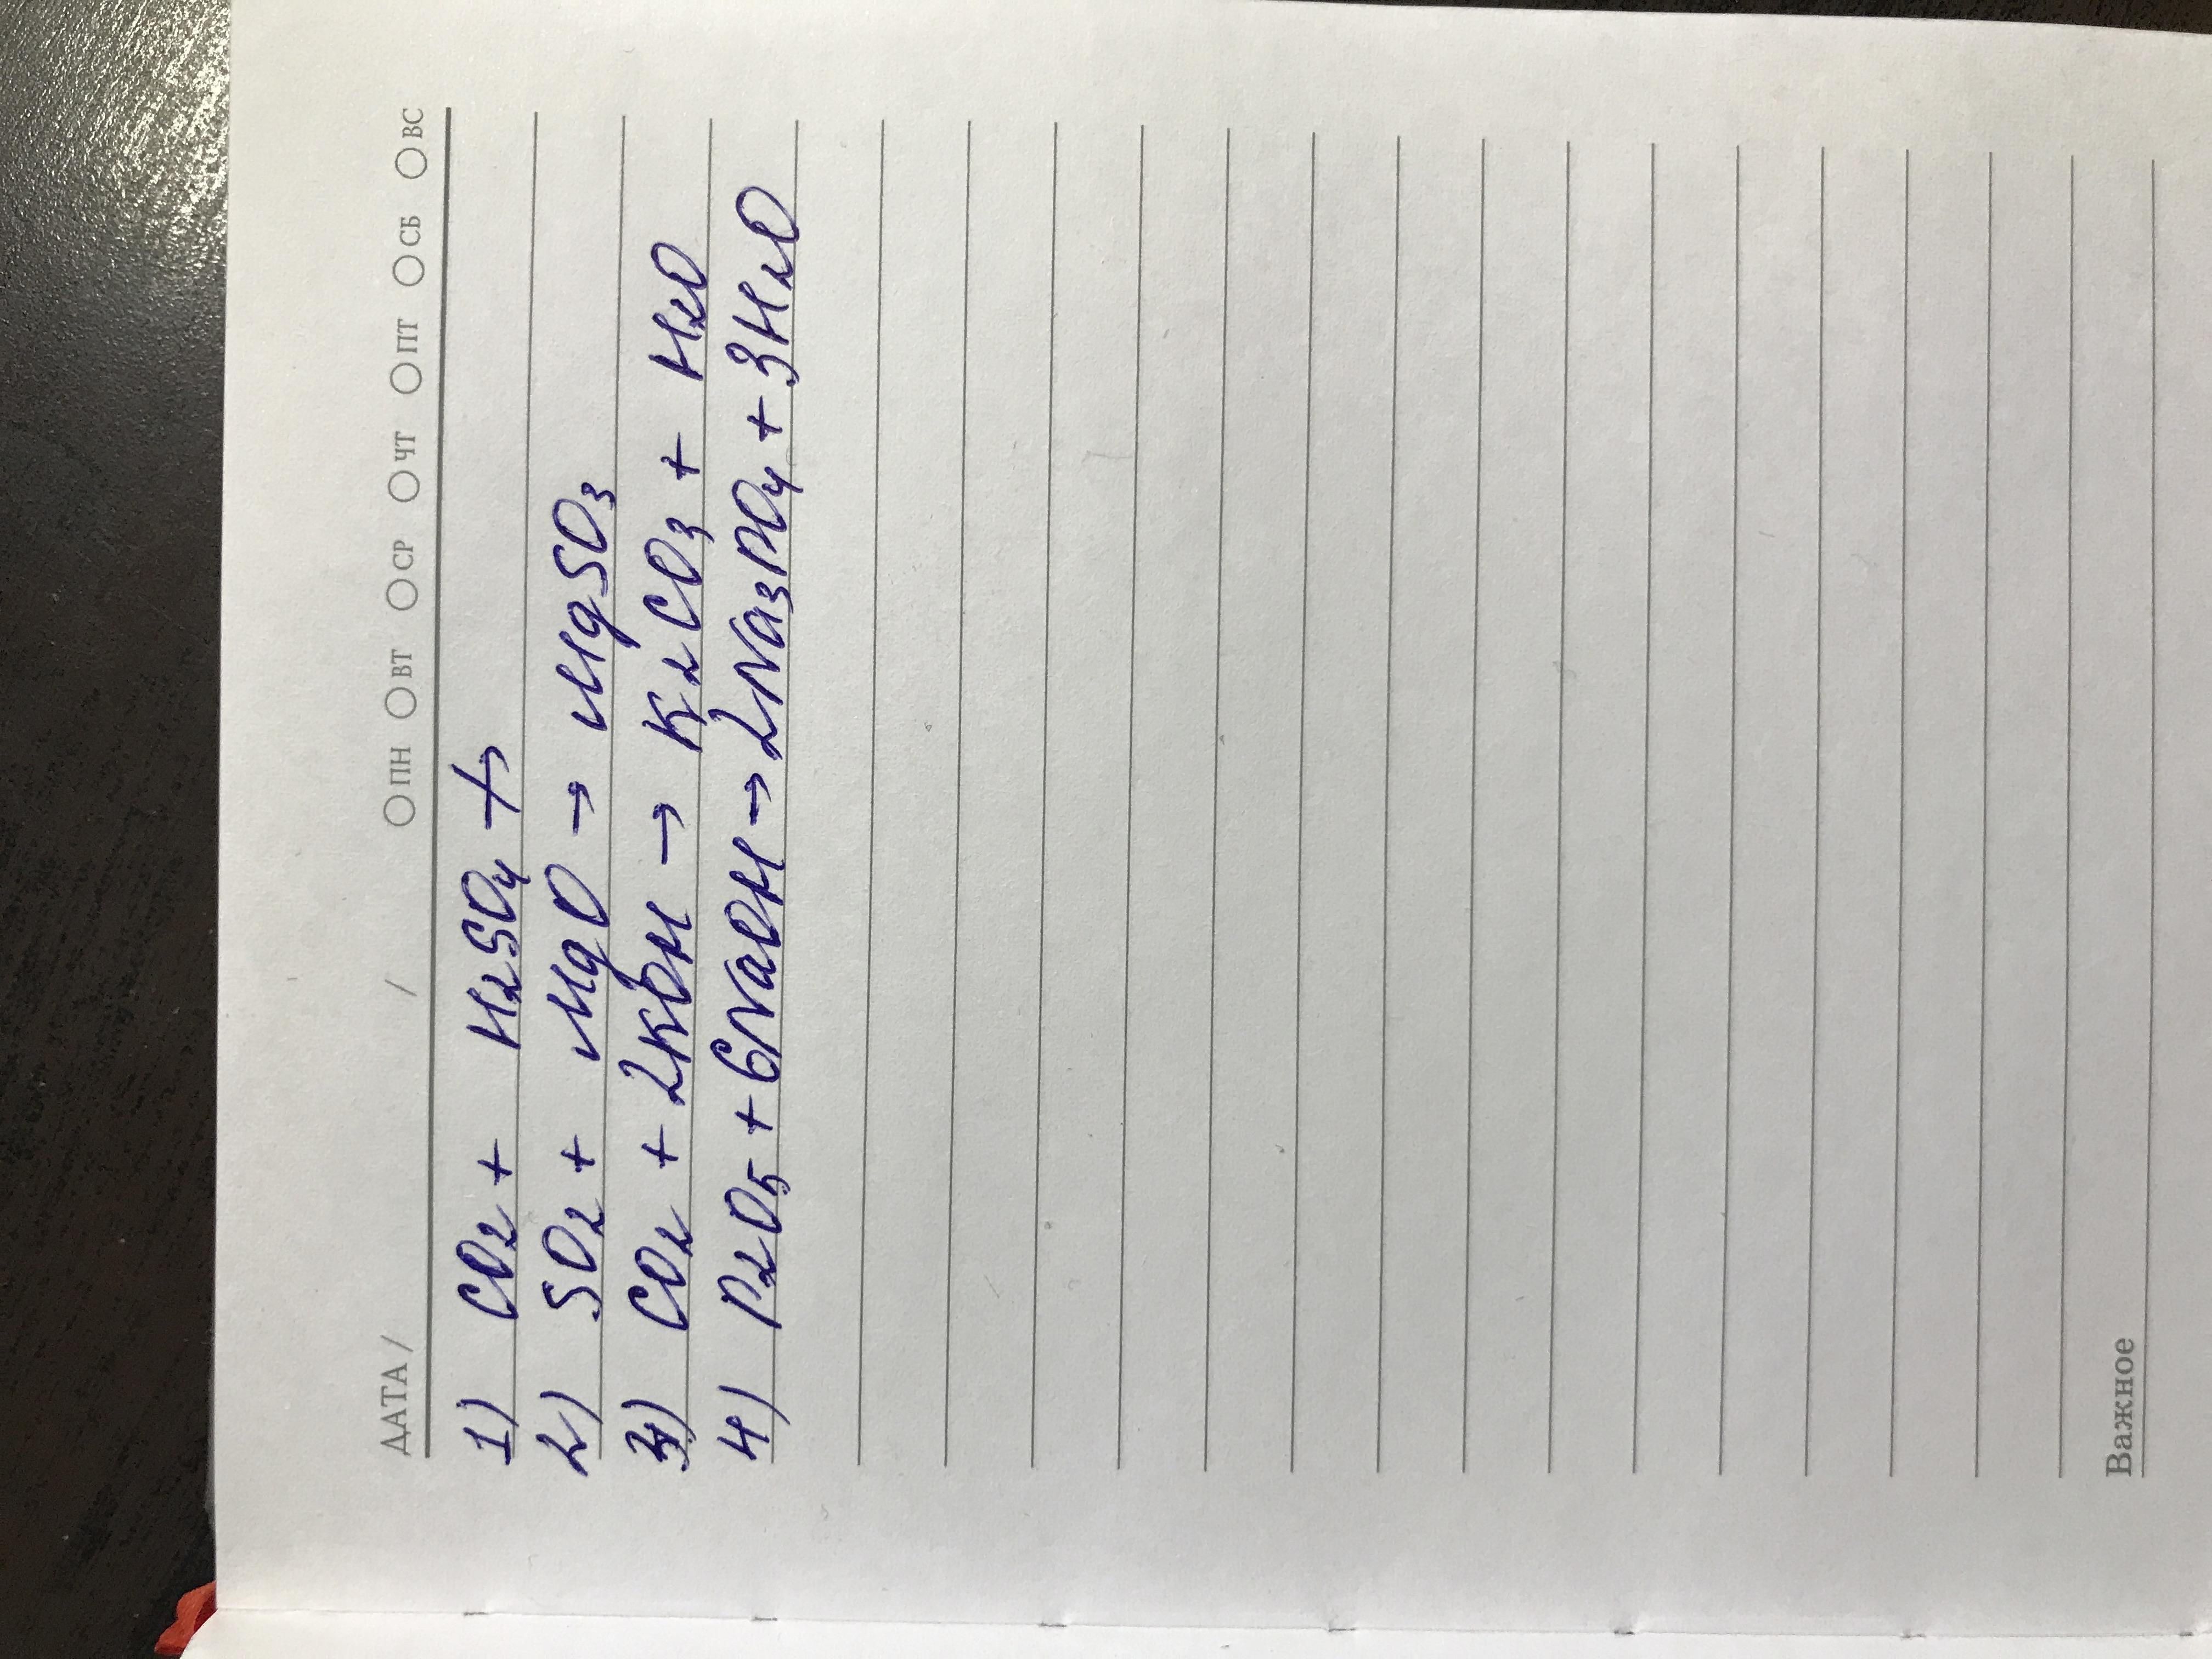 ДАТА / / ПН ВТ СР ЧТ ПТ СБ ВС
1) CO₂ + H₂SO₄ ↛
2) SO₂ + MgO → MgSO₃
3) CO₂ + 2KOH → K₂CO₃ + H₂O
4) P₂O₅ + 6NaOH → 2Na₃PO₄ + 3H₂O
Важное